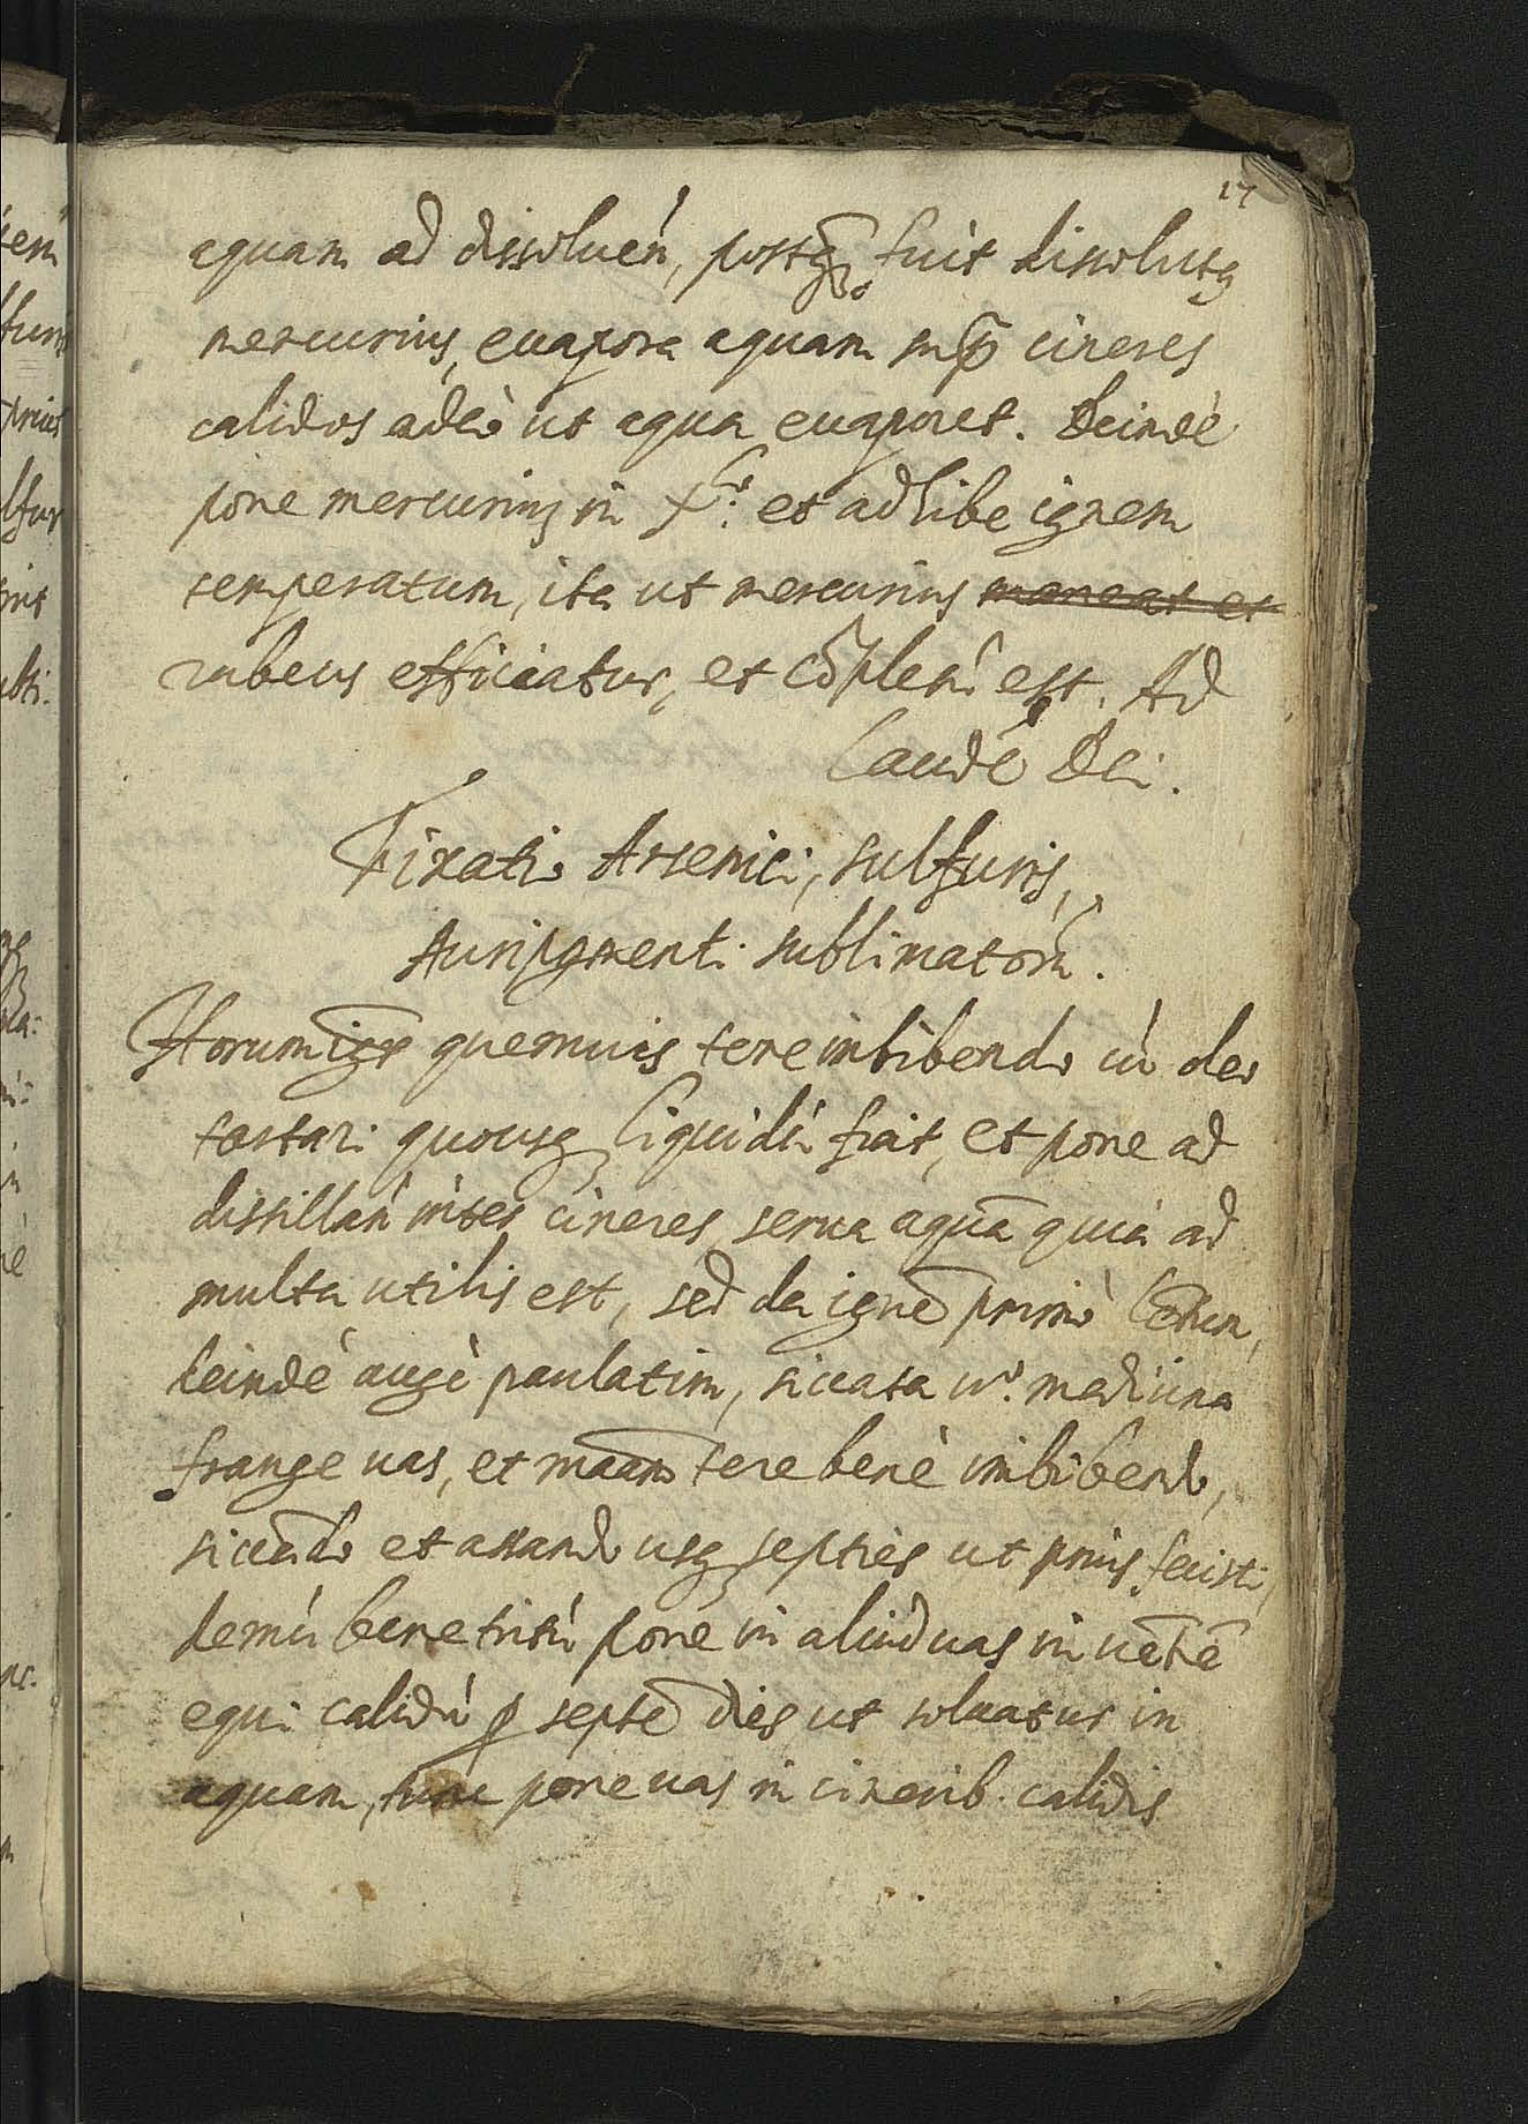 17
aquam ad dissoluen̄, postq̄ꝫ fuit dissolutꝗ
mercurius, euapora aquam sup̄ cineres
calidos adeò ut aqua euaporet. Deindè
pone mercurius in et adhibe ignem
temperatum, ita ut mercurius maneat et
rubeus efficiatur, et cōpletū est. Ad
Laudē Dei.
Fixatio Arsenici, sulfuris,
Auripgmenti sublimatorū.
Horum quemuis tere imbibendo cū oleo
tartari quousq liquidū fiat, et pone ad
distillan̄ inter cineres, serua aquā quia ad
multa utilis est, sed da ignē primò
deindè augè paulatim, siccata uº. medicina
frange uas, et maam̄ tere benè imbibendo,
siccādo et assando usq septiès ut prius fecisti,
demū bene tritū pone in aliud uas in uētrē
equi calidū ꝑ septē dies ut soluatur in
aquam, tunc pone uas in cinerib. calidis